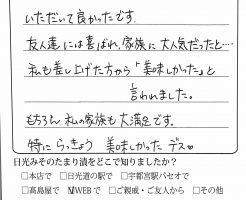 いただいて良かったです.
友人達には喜ばれ、家族に大人気だったと…
私も差し上げた方から「美味しかった」と
言われました。
もちろん 私の家族も大満足です.
特に らっきょう 美味しかった デス♡
日光みそのたまり漬をどこで知りましたか?
□本店で □日光道の駅で □宇都宮駅パセオで
□高島屋で ☑WEBで □ご親戚・ご友人から □その他